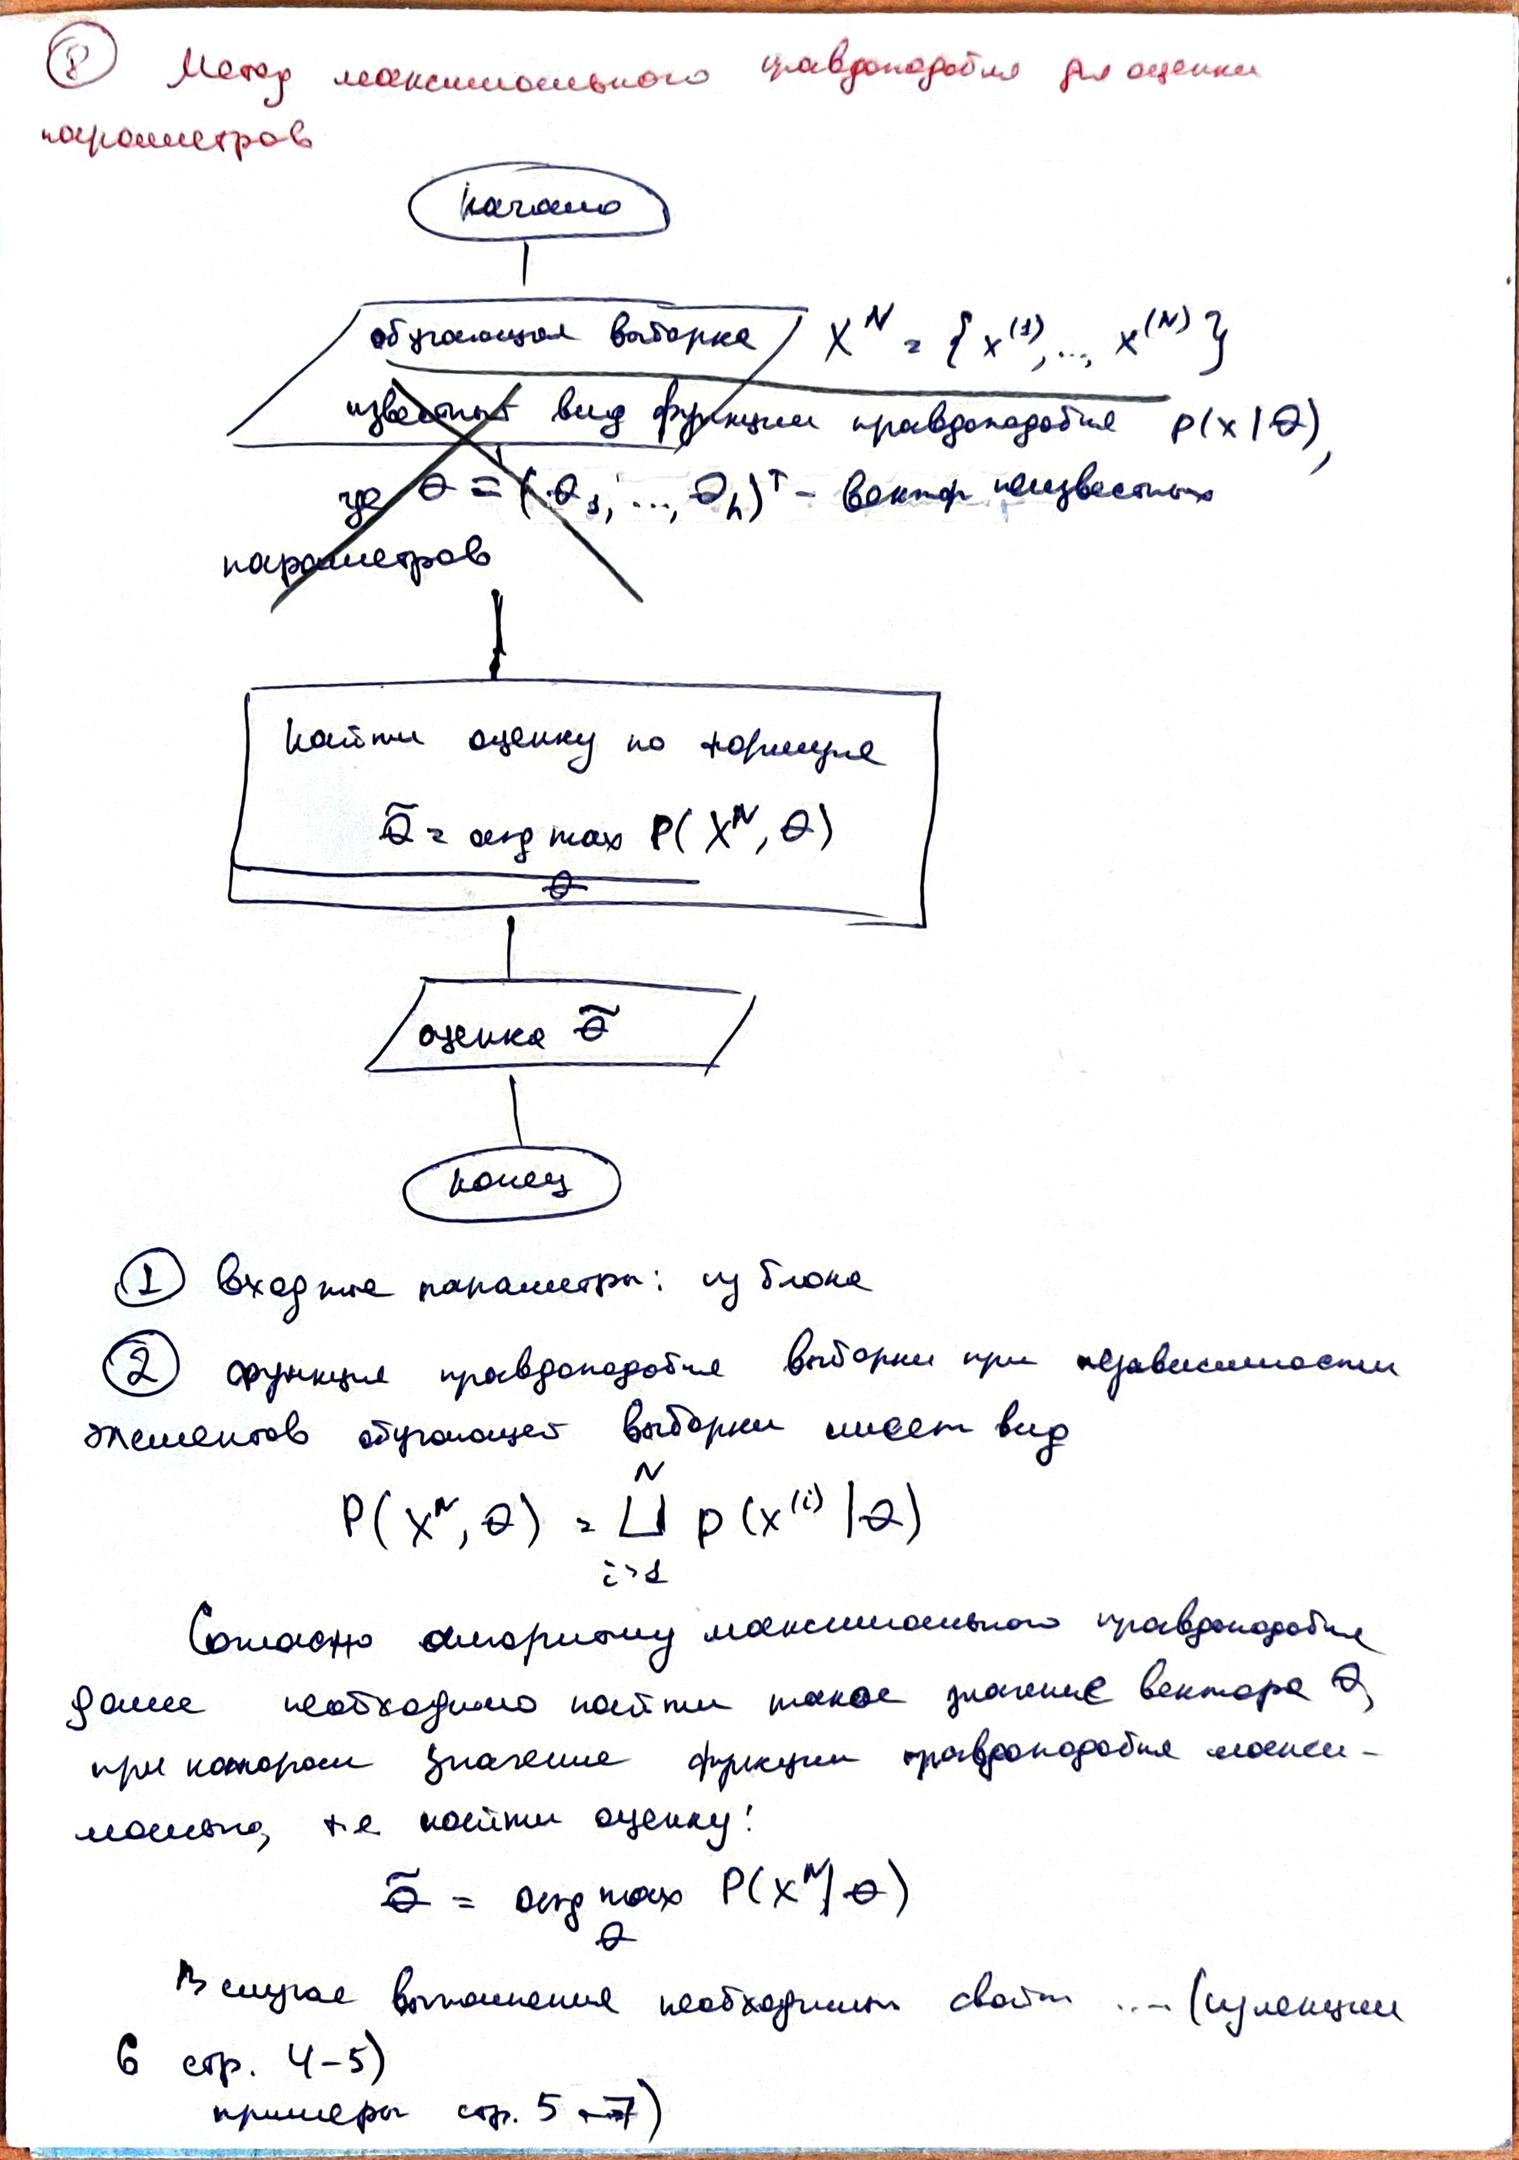 8 Метод максимального правдоподобия для оценки
параметров
начало
обучающая выборка X^N = {x^(1), ..., x^(N)}
известный вид функции правдоподобия p(x|θ),
где θ = (θ_1, ..., θ_h)^T - вектор неизвестных
параметров
найти оценку по формуле
θ̃ = arg max P(X^N, θ)
θ
оценка θ̃
конец
1 входные параметры: из блока
2 функция правдоподобия выборки при независимости
элементов обучающей выборки имеет вид
N
P(X^N, θ) = ∐ p(x^(i)|θ)
i=1
Согласно алгоритму максимального правдоподобия
далее необходимо найти такое значение вектора θ,
при котором значение функции правдоподобия макси-
мально, т.е найти оценку:
θ̃ = arg max P(X^N|θ)
θ
В случае выполнения необходимых свойств .... (из лекции
6 стр. 4-5)
примеры стр. 5-7)